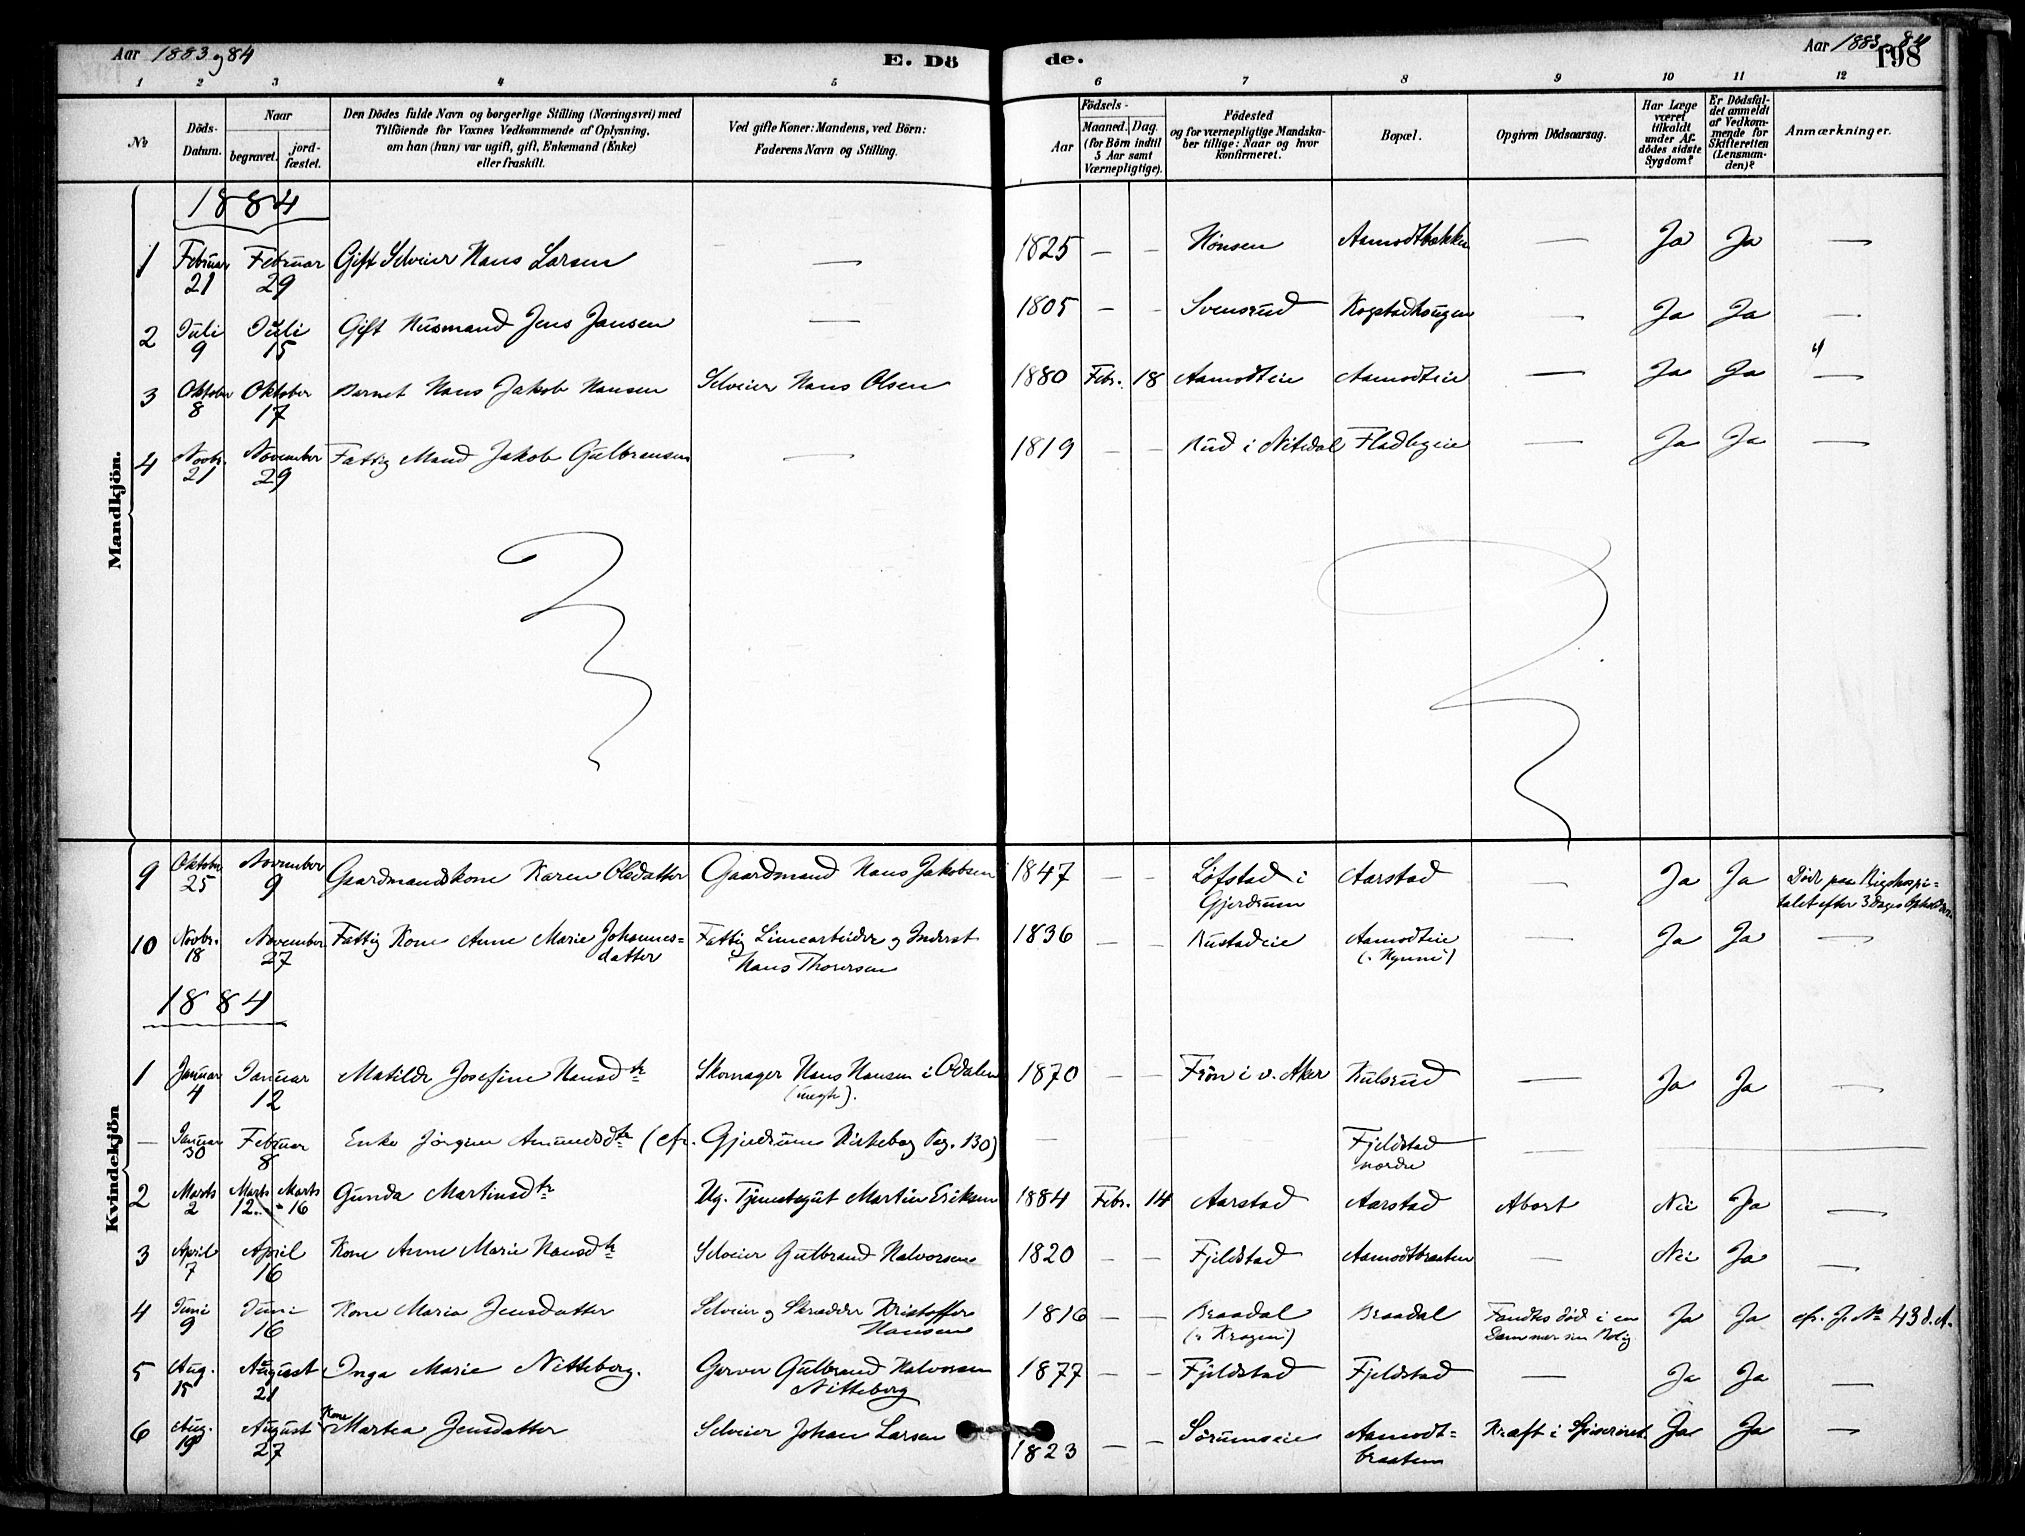 Aar 1883 og 84
E. Dö
de.
Aar 1883 84
198
1 2 3 4 5 6 7 8 9 10 11 12
No
Döds-
Datum.
Naar
begravet.
jord-
fæstet.
Den Dödes fulde Navn og borgerlige Stilling (Næringsvei) med
Tilföiende for Voxnes Vedkommende af Oplysning,
om han (hun) var ugift, gift, Enkemand (Enke)
eller fraskilt.
Ved gifte Koner: Mandens, ved Börn:
Faderens Navn og Stilling.
Födsels-
Aar
Maaned.
Dag.
(for Börn indtil
5 Aar samt
Værnepligtige).
Födested
og for værnepligtige Mandska-
ber tillige: Naar og hvor
konfirmeret.
Bopæl.
Opgiven Dödsaarsag.
Har Læge
været
tilkaldt
under Af-
dödes sidste
Sygdom?
Er Dödsfal-
det anmeldt
af Vedkom-
mende for
Skifteretten
(Lensman-
den)?
Anmærkninger.
Mandkjön.
1884
1 Februar 21 Februar 29 Gift Selveier Hans Larsen — 1825 — — Hønsen Aamodtbakken — Ja Ja —
2 Juli 9 Juli 15 Gift Husmand Jens Jansen — 1805 — — Svensrud Kogstadhaugen — Ja Ja —
3 Oktober 8 Oktober 17 Barnet Hans Jakob Hansen Selveier Hans Olsen 1880 Febr. 18 Aamodteie Aamodteie — Ja Ja —
4 Novbr. 21 November 29 Fattig Mand Jakob Gulbransen — 1819 — — Rud i Nitedal Fladbyeie — Ja Ja —
Kvindekjön
9 Oktober 25 November 9 Gaardmandskone Karen Olsdatter Gaardmand Hans Jakobsen 1847 — — Løfstad i Gjerdrum Aarstad — Ja Ja Døde paa Rigshospi-
talet efter 3 Dages Ophold der.
10 Novbr. 18 November 27 Fattig Kone Anne Marie Johannes=
datter Fattig Liniearbeider og Inderst
Hans Thoresen 1836 — — Rustadeie Aamodteie — Ja Ja —
1884
1 Januar 4 Januar 12 Matilde Josefine Hansdtr Skomager Hans Hansen i Odalen
(uegte). 1870 — — Frøn i v. Aker Kulsrud — Ja Ja —
— Januar 30 Februar 8 Enke Jörgine Amundsdtr (cfr. Gjerdrums Kirkebog Pag. 130) — — Fjeldstad
nordre —
2 Marts 2 Marts 12 Marts 16 Gunda Martinsdtr Ug. Tjenestegut Martin Eriksen 1884 Febr. 14 Aarstad Aarstad Abort Nei Ja —
3 April 7 April 16 Kone Anne Marie Hansdtr Selveier Gulbrand Halvorsen 1820 — — Fjeldstad Aamodtbraaten — Nei Ja —
4 Juni 9 Juni 16 Kone Maria Jensdatter Selveier og Skrædder Kristoffer
Hansen 1816 — — Braadal
(v. Kragem) Braadal Fandtes død i en
Dam nær sin Bolig Ja Ja cfr. J. No 43 d. A.
5 Aug. 15 August 21 Inga Marie Nitteberg. Garver Gulbrand Halvorsen
Nitteberg 1877 — — Fjeldstad Fjeldstad — Ja Ja —
6 Aug. 19 August 27 Kone Martea Jensdatter Selveier Johan Larsen 1823 — — Sörumseie Aamodt=
braaten Kræft i Spiserøret Ja Ja —